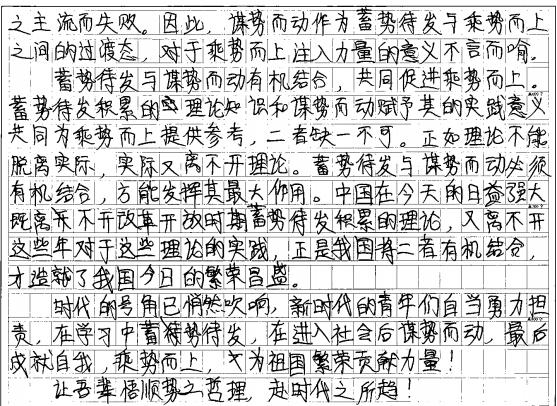 之主流而失败。因此，谋势而动作为蓄势待发与乘势而上
之间的过渡态，对于乘势而上注入力量的意义不言而喻。
蓄势待发与谋势而动有机结合，共同促进乘势而上。
蓄势待发积累的理论知识和谋势而动赋予其的实践意义
共同为乘势而上提供参考，二者缺一不可。正如理论不能
脱离实际，实际又离不开理论。蓄势待发与谋势而动必须
有机结合，方能发挥其最大作用。中国在今天的日益强大
既离不开改革开放时期蓄势待发积累的理论，又离不开
这些年对于这些理论的实践，正是我国将二者有机结合，
才造就了我国今日的繁荣昌盛。
时代的号角已悄然吹响，新时代的青年们自当勇力担
责，在学习中蓄势待发，在进入社会后谋势而动，最后
成就自我，乘势而上，为祖国繁荣贡献力量！
让吾辈悟顺势之哲理，赴时代之所趋！